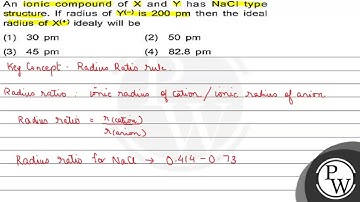 An ionic compound of X and Y has NaCl type
structure. If radius of Y(–) is 200 pm then the ideal
radius of X(+) idealy will be
(1) 30 pm (2) 50 pm
(3) 45 pm (4) 82.8 pm
Key Concept - Radius Ratio rule.
Radius ratio : ionic radius of cation / ionic radius of anion
Radius ratio = r(cation)
r(anion)
Radius ratio for NaCl → 0.414 – 0.73
P
W